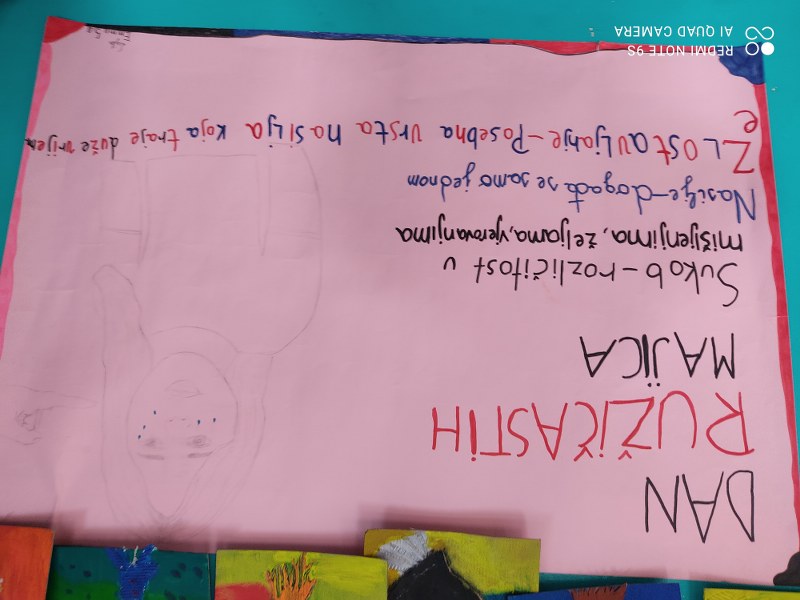 DAN
RUŽIČASTIH
MAJICA
Sukob - različitost u
mišljenjima, željama, vjerovanjima
Nasilje - događa se samo jednom
ZLostavljanje - Posebna vrsta nasilja koja traje duže vrijem
e
REDMI NOTE 9S
AI QUAD CAMERA